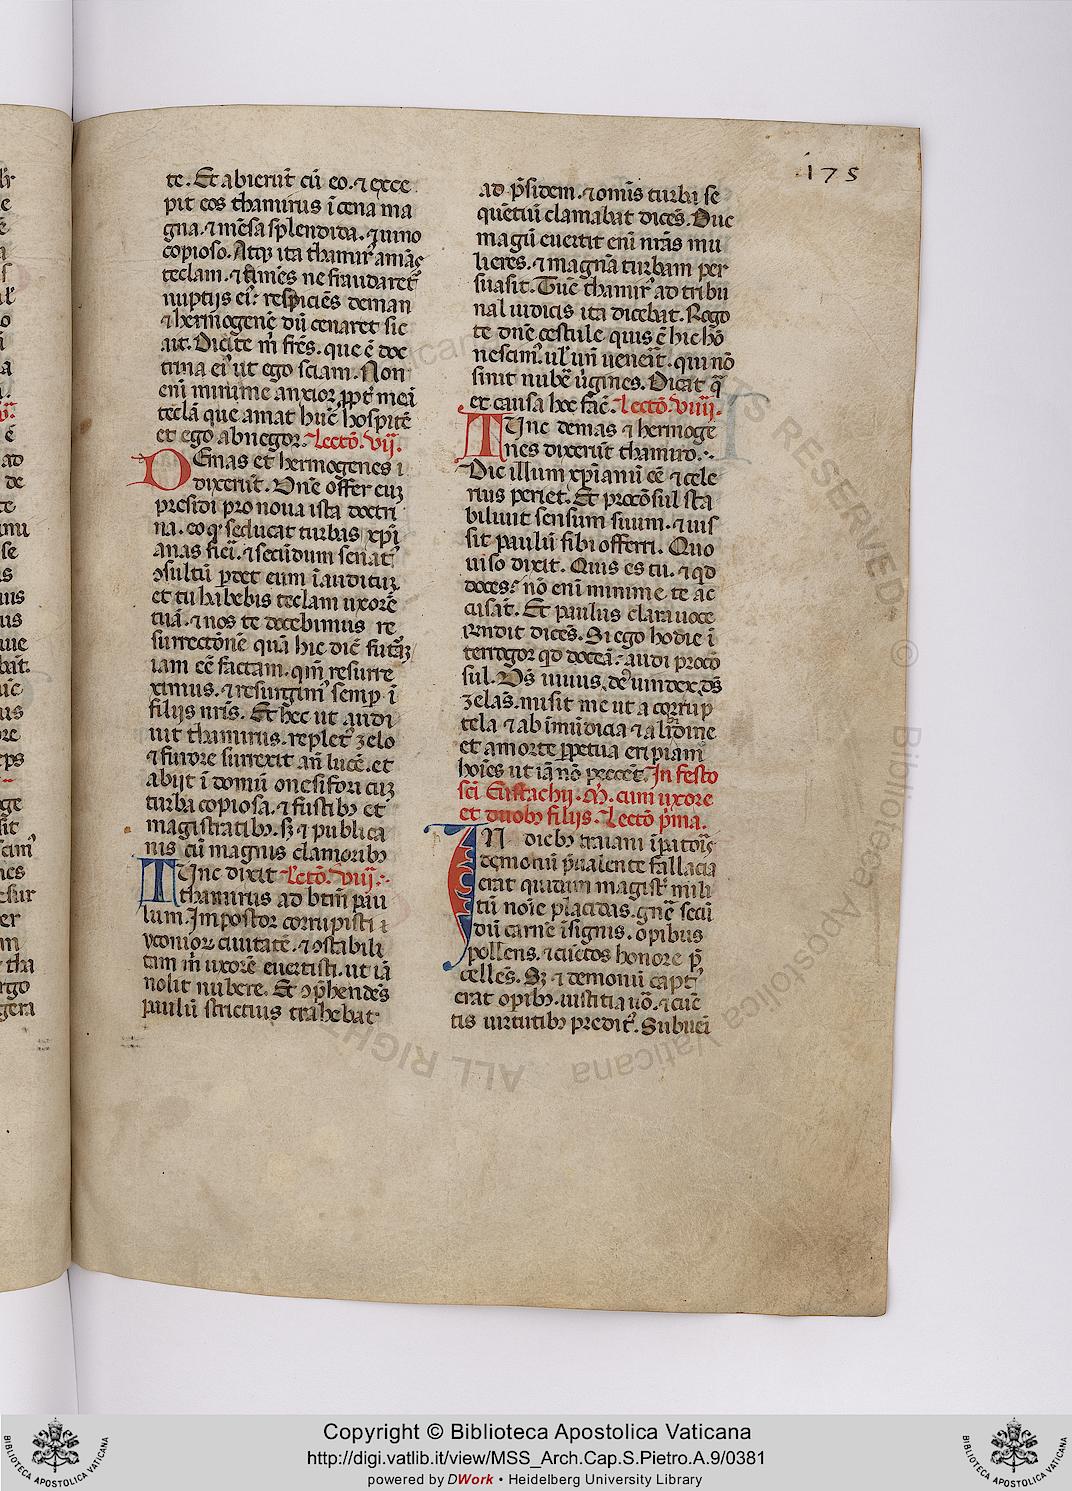 175
te. Et abierūt cū eo. ⁊ exce
pit eos thamirus ī cena ma
gna. ⁊ mēsa splendida. ⁊ uino
copioso. Atq; ita thamir' amās
teclam. ⁊ ne fraudaret'
nuptijs ei': respiciēs deman
⁊ hermogenē dū cenaret sic
ait. Dicite m̄ fr̄es. que ē doc
trina ei' ut ego sciam. Non
enī minime anxior ꝓpt' meā
teclā que amat hūc hospitē
et ego abnegor. Lectō. vij.
DEmas et hermogenes
dixerūt. Dn̄e offer euꝫ
presidi pro noua ista doctri
na. eo q' seducat turbas xp̄i
anas fieī. ⁊ secūdum senat'
ꝯsultū ꝑdet eum ī auditu.
et tu habebis teclam uxorē
tuā. ⁊ nos te docebimus re
surrectōnē quā hic diē futuꝝ
iam eē factam. qm̄ resurre
ximus. ⁊ resurgim' semꝑ ī
filijs nr̄is. Et hec ut audi
uit thamirus. replet' zelo
⁊ furore surrexit an̄ lucē. et
abijt ī domū onesifori cuꝫ
turba copiosa. ⁊ fustibꝰ et
magistratibꝰ. sꝫ ⁊ publica
nis cū magnis clamoribꝰ
TUnc dixit Lectō. viij.
thamirus ad btm̄ pau
lum. Impostor corrupisti
yconioꝝ ciuitatē. ⁊ ꝯstabili
tam m̄ uxorē euertisti. ut iā
nolit nubere. Et ꝯp̄hendēs
paulū strictius trahebat
ad p̄sidem. ⁊ omīs turba se
quētiū clamabat dicēs. Duc
magū euertit enī nr̄as mu
lieres. ⁊ magnā turbam per
suasit. Tūc thamir' ad tribu
nal iudicis ita dicebat. Rogo
te dn̄e cestule quis ē hic hō
nescim'. ul' un̄ uenerit. qui nō
sinit nubē u'gines. Dicat q̄
et causa hec faē. Lectō. viiij.
TUnc demas ⁊ hermoge
nes dixerūt thamiro.
Dic illum xp̄ianū eē ⁊ cele
rius periet. Et procōsul sta
biliuit sensum suum. ⁊ ius
sit paulū sibi offerri. Quo
uiso dixit. Quis es tu. ⁊ qd̄
doces? nō enī minime te ac
cusāt. Et paulus clara uoce
rn̄dit dicēs. Si ego hodie ī
terrogor qd̄ doceā: audi procō
sul. Ds̄ uiuus, de' uindex, ds̄
zelās. misit me ut a corrup
tela ⁊ ab īmūdicia ⁊ a libidine
et a morte ꝑpetua eripiam
hoīes ut iā nō peccēt. In festo
scī Eustachij. M. cum uxore
et duobꝰ filijs. Lectō p̄ma.
IN diebꝰ traiani īꝑatoris
demonū p̄ualente fallacia
erat quidam magist' mili
tū noīe placidas. gn̄e secū
dū carnē īsignis. opibus
pollens. ⁊ cūctos honore p̄
cellēs. Sꝫ ⁊ demonū capt'
erat opibꝰ. iustitia uō. ⁊ cūc
tis uirtutibꝰ predit'. Subueī
Copyright © Biblioteca Apostolica Vaticana
http://digi.vatlib.it/view/MSS_Arch.Cap.S.Pietro.A.9/0381
powered by DWork • Heidelberg University Library
BIBLIOTECA APOSTOLICA VATICANA
BIBLIOTECA APOSTOLICA VATICANA